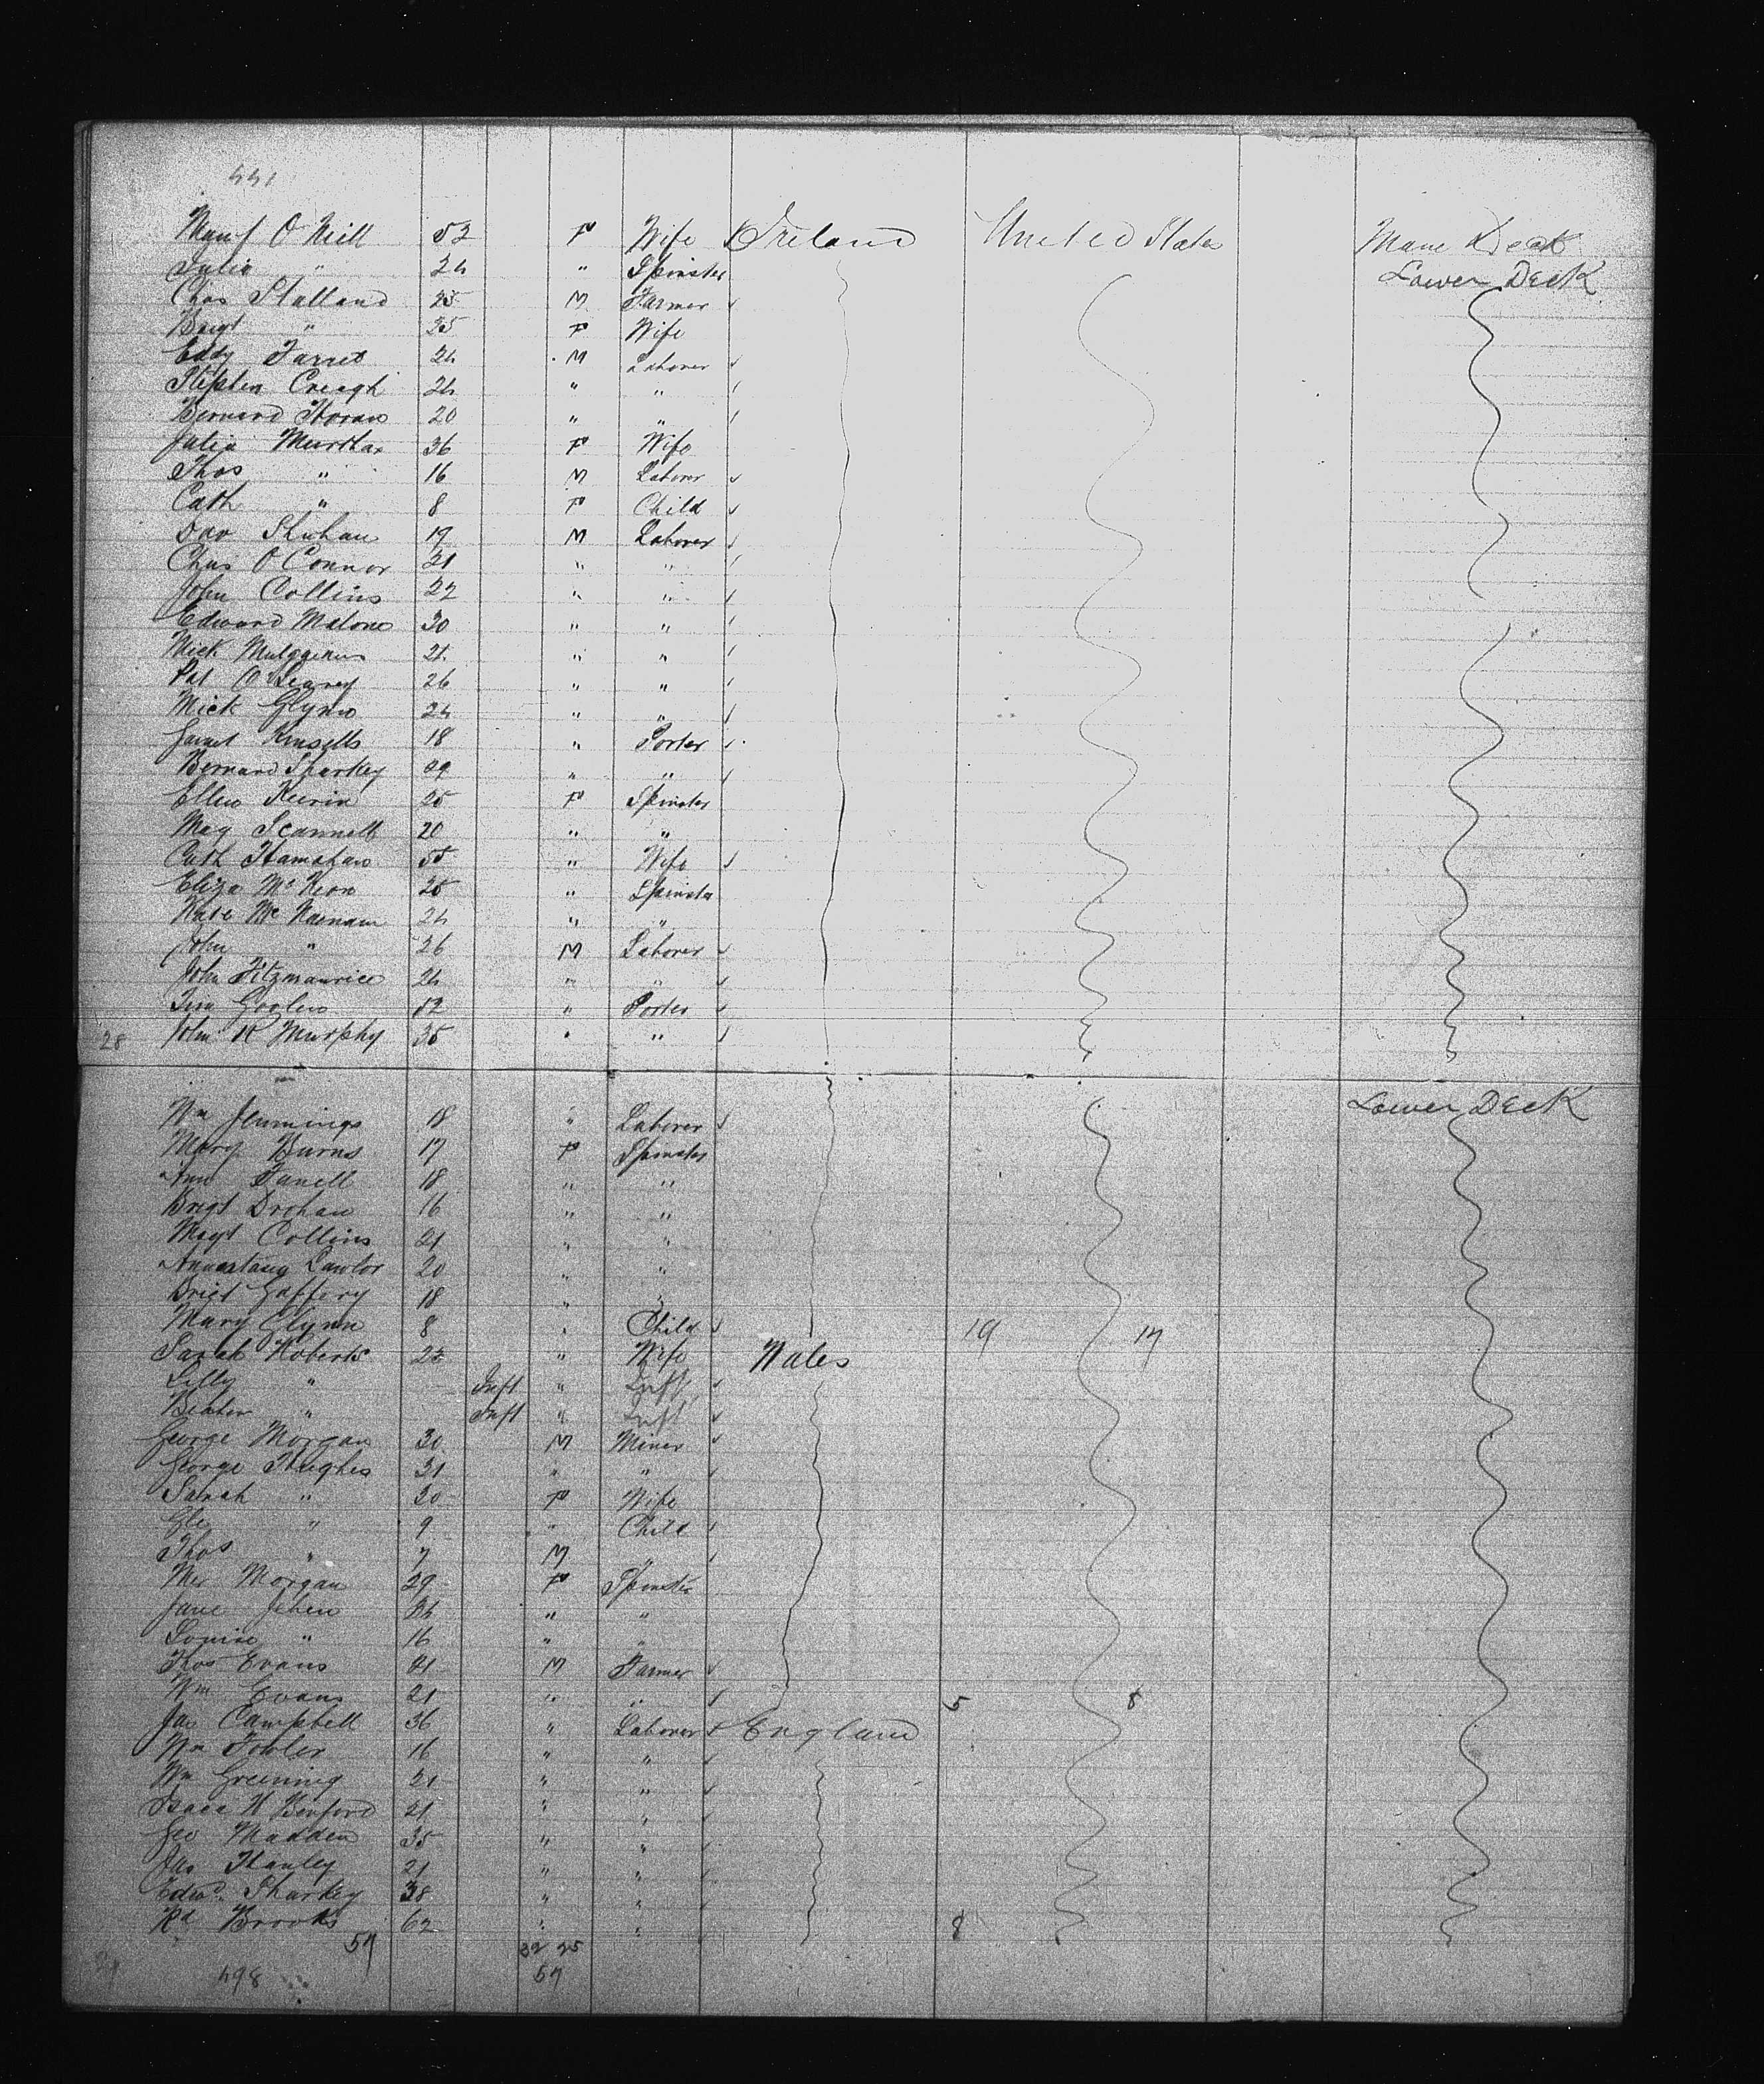 441
O Neill 53 F Wife Ireland United States Main Deck
Julia " 24 " Spinster Lower Deck
Chas Stalland 25 M Farmer
Brigt " 25 F Wife
Eddy 24 M Laborer
Stephen Creagh 24 " "
Bernard Horan 20 " "
Julia Murtha 36 F Wife
Thos " 16 M Laborer
Cath " 8 F Child
19 M Laborer
Chas O Connor 21 " "
John Collins 22 " "
Edward Malone 30 " "
Mick 21 " "
Pat O'Leary 26 " "
Mick Glynn 24 " "
18 " Porter
Bernard Sharkey 29 " "
Ellen 25 F Spinster
Mag Scannell 20 " "
Cath 55 " Wife
Eliza McKeon 25 " Spinster
Kate 24 " "
John " 26 M Laborer
John Fitzmaurice 24 " "
52 " Porter
28 John K Murphy 35 " "
Wm Jennings 18 " Laborer Lower Deck
Mary Burns 17 F Spinster
Ann 18 " "
Brigt Drohan 16 " "
Magt Collins 21 " "
Lawlor 20 " "
Brigt Gaffery 18 " "
Mary Glynn 8 " Child 19 17
Sarah Roberts 22 " Wife Wales
Lilly " Inft " Inft
" Inft " Inft
George Morgan 30 M Miner
George Hughes 31 " "
Sarah " 20 F Wife
" 9 " Child
Thos " 7 M "
Morgan 29 F Spinster
Jane 24 " "
Louise " 16 " "
Thos Evans 21 M Farmer
Wm Evans 21 " " 5 8
Jas Campbell 36 " Laborer England
Wm Fowler 16 " "
Wm Greening 21 " "
Isaac H Benford 21 " "
Geo Madden 35 " "
Jas Hanley 21 " "
Edwd. Sharkey 38 " "
Rd Brooks 62 " " 8
57 32 25
498 57